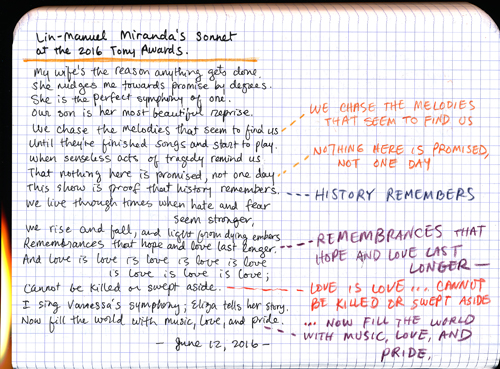 Lin-Manuel Miranda's Sonnet
at the 2016 Tony Awards.
My wife's the reason anything gets done.
She nudges me towards promise by degrees.
She is the perfect symphony of one.
Our son is her most beautiful reprise.
We chase the melodies that seem to find us
Until they're finished songs and start to play.
When senseless acts of tragedy remind us
That nothing here is promised, not one day
This show is proof that history remembers.
We live through times when hate and fear
seem stronger,
We rise and fall, and light from dying embers
Remembrances that hope and love last longer.
And love is love is love is love is love
is love is love is love;
Cannot be killed or swept aside.
I sing Vanessa's symphony; Eliza tells her story.
Now fill the world with music, love, and pride.
- June 12, 2016 -
WE CHASE THE MELODIES
THAT SEEM TO FIND US
NOTHING HERE IS PROMISED,
NOT ONE DAY
HISTORY REMEMBERS
REMEMBRANCES THAT
HOPE AND LOVE LAST
LONGER —
LOVE IS LOVE ... CANNOT
BE KILLED OR SWEPT ASIDE
... NOW FILL THE WORLD
WITH MUSIC, LOVE, AND
PRIDE.